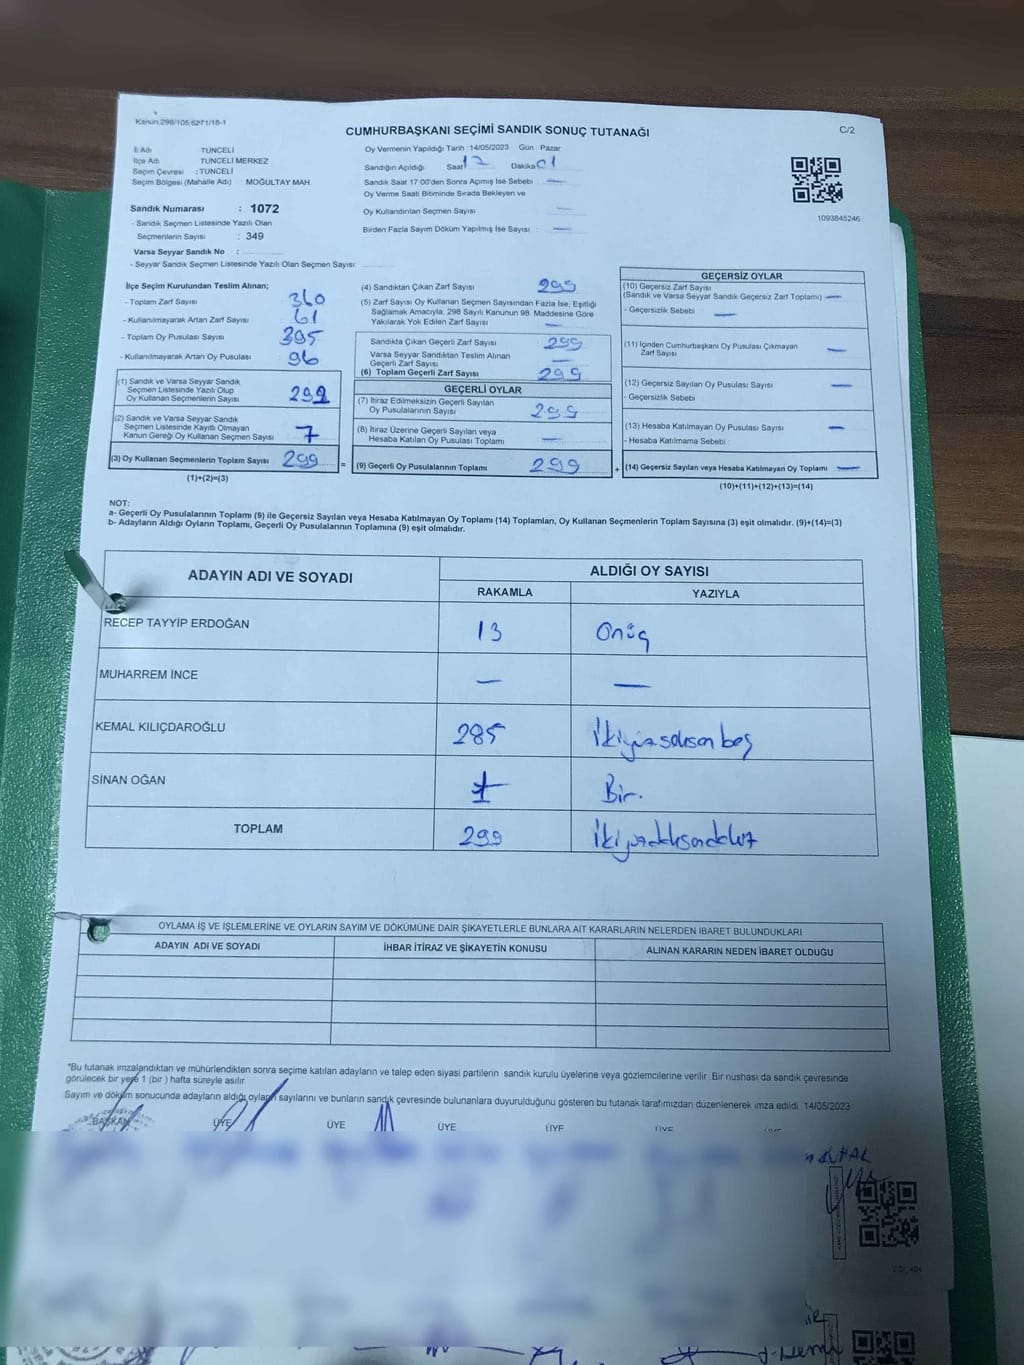 Kanun,298/105 6271/18-1
CUMHURBAŞKANI SEÇİMİ SANDIK SONUÇ TUTANAĞI
C/2
İl Adı TUNCELİ
İlçe Adı TUNCELİ MERKEZ
Seçim Çevresi : TUNCELİ
Seçim Bölgesi (Mahalle Adı) MOĞULTAY MAH
Sandık Numarası : 1072
- Sandık Seçmen Listesinde Yazılı Olan
Seçmenlerin Sayısı : 349
Varsa Seyyar Sandık No :
- Seyyar Sandık Seçmen Listesinde Yazılı Olan Seçmen Sayısı:
Oy Vermenin Yapıldığı Tarih : 14/05/2023 Gün : Pazar
Sandığın Açıldığı Saat 17 Dakika 01
Sandık Saat 17:00'den Sonra Açmış İse Sebebi —
Oy Verme Saati Bitiminde Sırada Bekleyen ve
Oy Kullandırılan Seçmen Sayısı —
Birden Fazla Sayım Döküm Yapılmış İse Sayısı —
1093845246
İlçe Seçim Kurulundan Teslim Alınan;
- Toplam Zarf Sayısı 360
- Kullanılmayarak Artan Zarf Sayısı 61
- Toplam Oy Pusulası Sayısı 395
- Kullanılmayarak Artan Oy Pusulası 96
(1) Sandık ve Varsa Seyyar Sandık
Seçmen Listesinde Yazılı Olup
Oy Kullanan Seçmenlerin Sayısı 292
(2) Sandık ve Varsa Seyyar Sandık
Seçmen Listesinde Kayıtlı Olmayan
Kanun Gereği Oy Kullanan Seçmen Sayısı 7
(3) Oy Kullanan Seçmenlerin Toplam Sayısı 299
(1)+(2)=(3)
(4) Sandıktan Çıkan Zarf Sayısı 299
(5) Zarf Sayısı Oy Kullanan Seçmen Sayısından Fazla İse, Eşitliği
Sağlamak Amacıyla, 298 Sayılı Kanunun 98. Maddesine Göre
Yakılarak Yok Edilen Zarf Sayısı —
Sandıkta Çıkan Geçerli Zarf Sayısı 299
Varsa Seyyar Sandıktan Teslim Alınan
Geçerli Zarf Sayısı —
(6) Toplam Geçerli Zarf Sayısı 299
GEÇERLİ OYLAR
(7) İtiraz Edilmeksizin Geçerli Sayılan
Oy Pusulalarının Sayısı 299
(8) İtiraz Üzerine Geçerli Sayılan veya
Hesaba Katılan Oy Pusulası Toplamı —
= (9) Geçerli Oy Pusulalarının Toplamı 299
GEÇERSİZ OYLAR
(10) Geçersiz Zarf Sayısı
(Sandık ve Varsa Seyyar Sandık Geçersiz Zarf Toplamı) —
- Geçersizlik Sebebi —
(11) İçinden Cumhurbaşkanı Oy Pusulası Çıkmayan
Zarf Sayısı —
(12) Geçersiz Sayılan Oy Pusulası Sayısı —
- Geçersizlik Sebebi
(13) Hesaba Katılmayan Oy Pusulası Sayısı —
- Hesaba Katılmama Sebebi
+ (14) Geçersiz Sayılan veya Hesaba Katılmayan Oy Toplamı —
(10)+(11)+(12)+(13)=(14)
NOT:
a- Geçerli Oy Pusulalarının Toplamı (9) ile Geçersiz Sayılan veya Hesaba Katılmayan Oy Toplamı (14) Toplamları, Oy Kullanan Seçmenlerin Toplam Sayısına (3) eşit olmalıdır. (9)+(14)=(3)
b- Adayların Aldığı Oyların Toplamı, Geçerli Oy Pusulalarının Toplamına (9) eşit olmalıdır.
ADAYIN ADI VE SOYADI
ALDIĞI OY SAYISI
RAKAMLA YAZIYLA
RECEP TAYYİP ERDOĞAN 13 Onüç
MUHARREM İNCE — —
KEMAL KILIÇDAROĞLU 285 İkiyüzseksen beş
SİNAN OĞAN 1 Bir.
TOPLAM 299 İkiyüzdoksandokuz
OYLAMA İŞ VE İŞLEMLERİNE VE OYLARIN SAYIM VE DÖKÜMÜNE DAİR ŞİKAYETLERLE BUNLARA AİT KARARLARIN NELERDEN İBARET BULUNDUKLARI
ADAYIN ADI VE SOYADI İHBAR İTİRAZ VE ŞİKAYETİN KONUSU ALINAN KARARIN NEDEN İBARET OLDUĞU
"Bu tutanak imzalandıktan ve mühürlendikten sonra seçime katılan adayların ve talep eden siyasi partilerin sandık kurulu üyelerine veya gözlemcilerine verilir .Bir nüshası da sandık çevresinde
görülecek bir yere 1 (bir ) hafta süreyle asılır
Sayım ve döküm sonucunda adayların aldığı oyların sayılarını ve bunların sandık çevresinde bulunanlara duyurulduğunu gösteren bu tutanak tarafımızdan düzenlenerek imza edildi 14/05/2023
BAŞKAN ÜYE ÜYE ÜYE ÜYE ÜYE